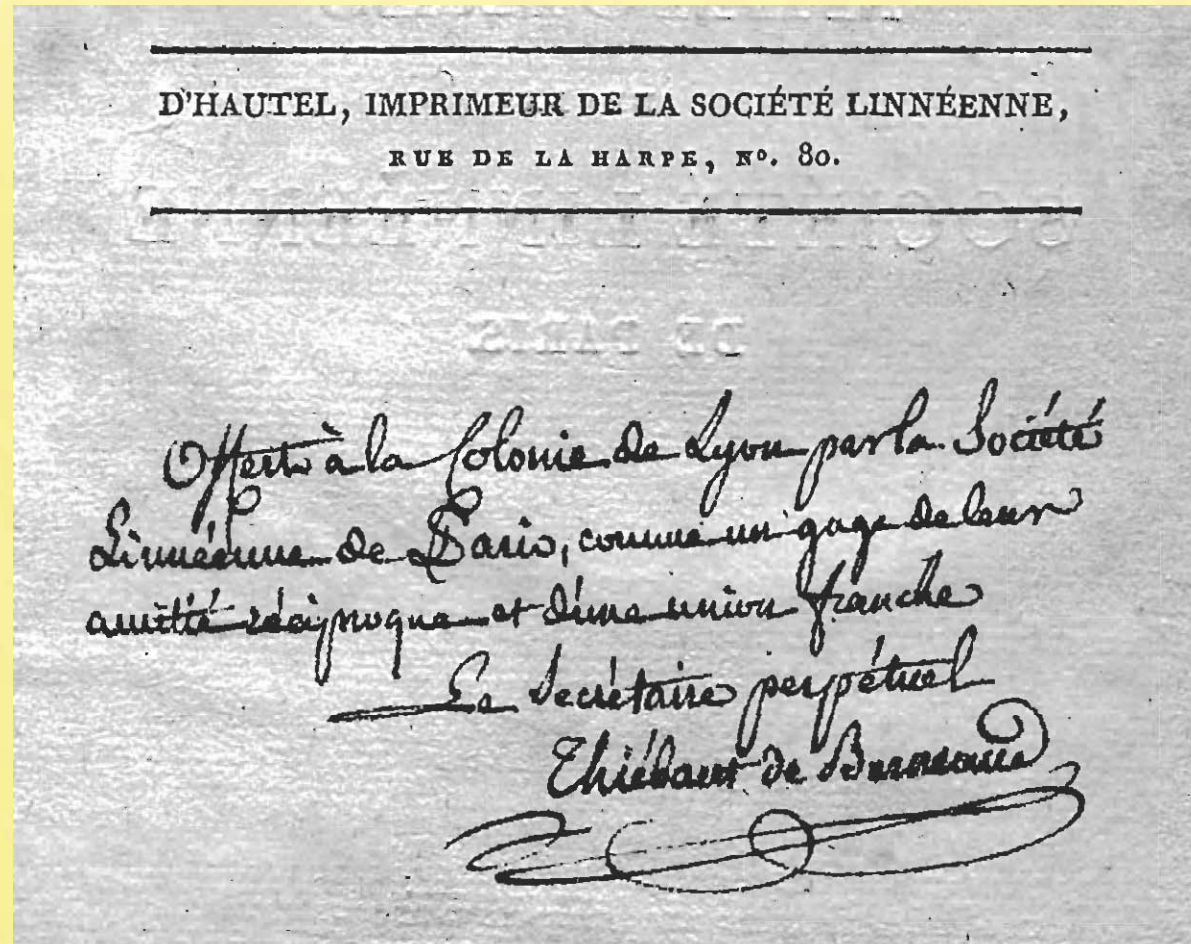 D'HAUTEL, IMPRIMEUR DE LA SOCIÉTÉ LINNÉENNE,
RUE DE LA HARPE, Nº. 80.
DE PARIS
Offert à la Colonie de Lyon par la Société
Linnéenne de Paris, comme un gage de leur
amitié réciproque et d'une union franche
Le Secrétaire perpétuel
Thiébaut de Berneaud